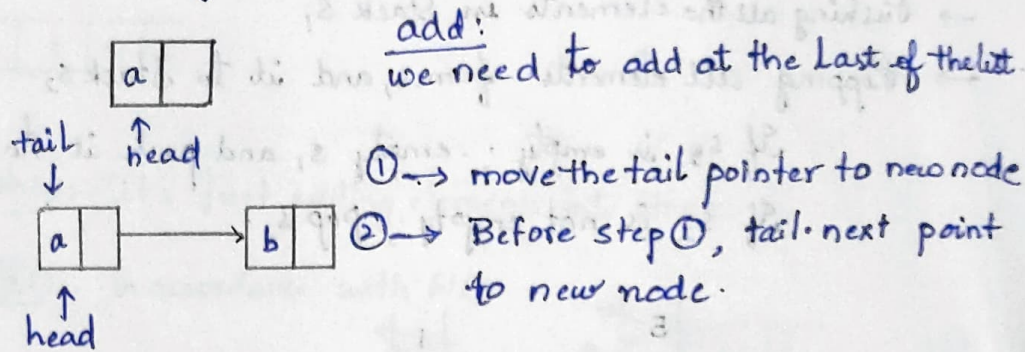 add:
we need to add at the Last of the list
a
head
tail
① → move the tail pointer to new node
a b
② → Before step ①, tail.next point
to new node.
head